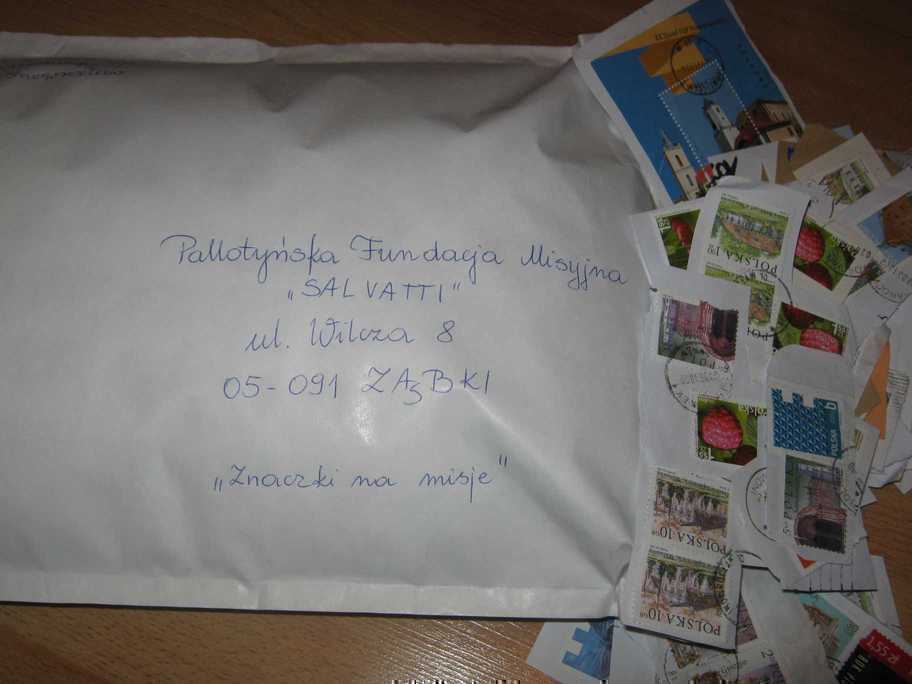 Pallotyńska Fundacja Misyjna
„SALVATTI"
ul. Wilcza 8
05-091 ZĄBKI
„Znaczki na misje"
POLSKA 1
POLSKA 10
POLSKA 10
POLSKA